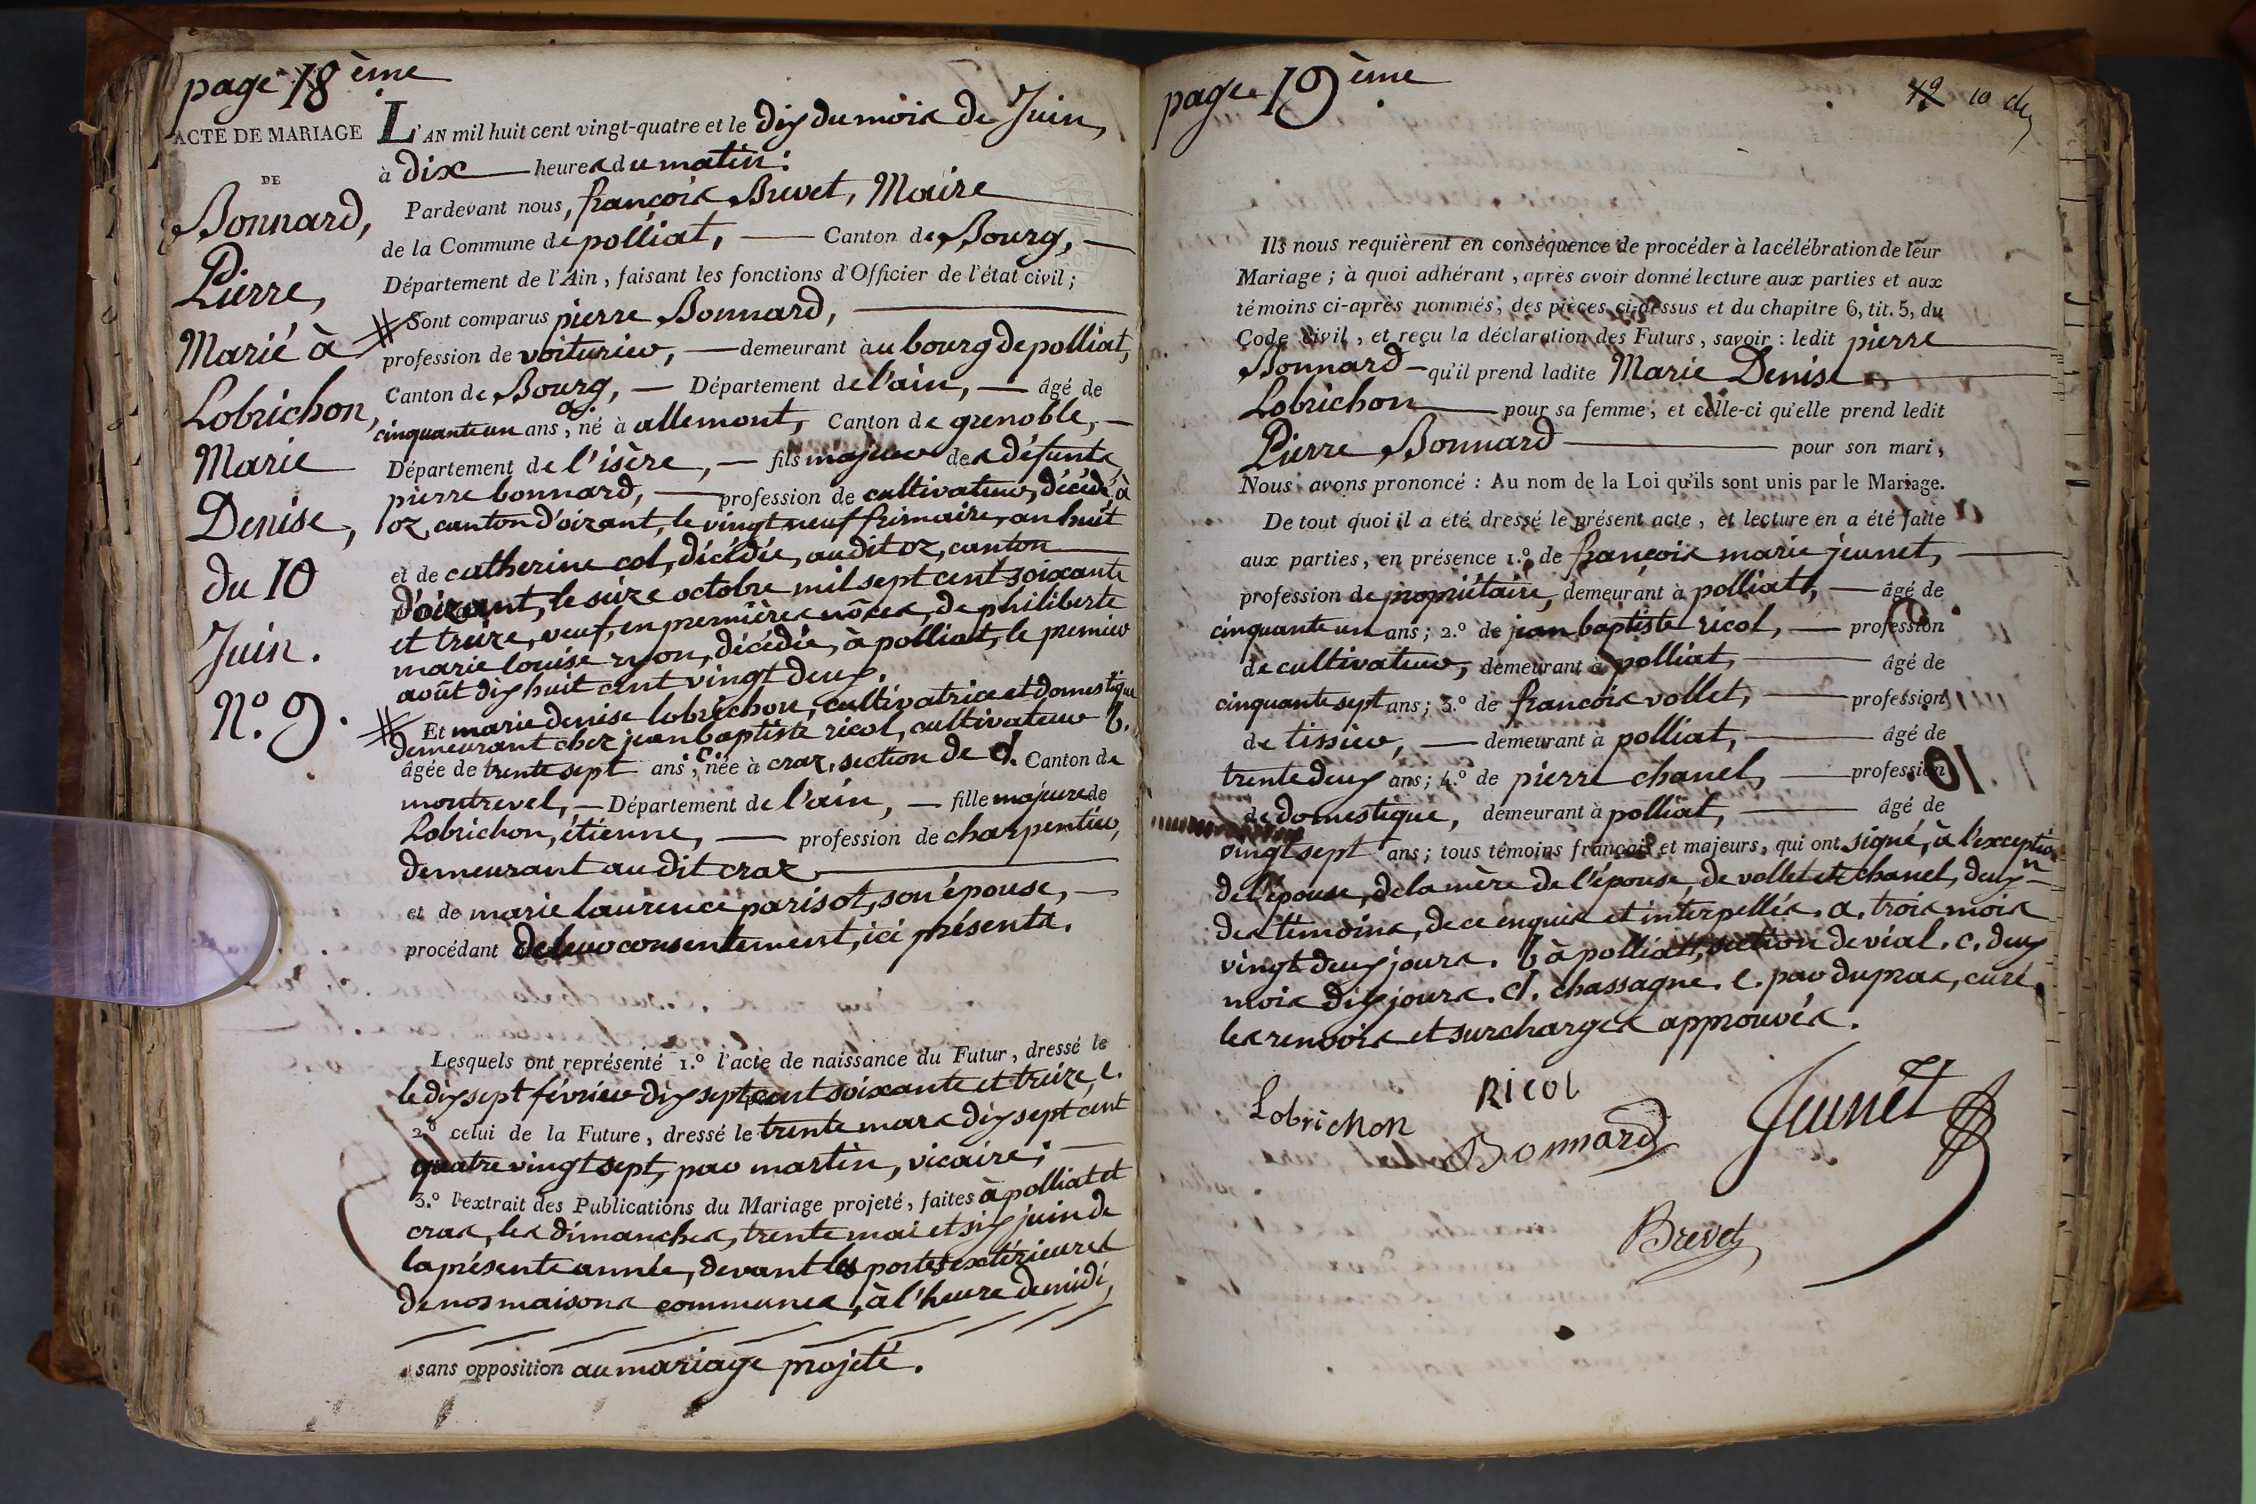 page 18 ème
ACTE DE MARIAGE
DE
Bonnard,
Pierre,
Marié à
Lobrichon,
Marie
Denise,
du 10
Juin.
N.º 9.
L'AN mil huit cent vingt-quatre et le dix du mois de Juin,
à dix heures du matin:
Pardevant nous, françois Brevet, Maire
de la Commune de polliat, Canton de Bourg,
Département de l'Ain, faisant les fonctions d'Officier de l'état civil;
Sont comparus pierre Bonnard,
profession de voiturier, demeurant au bourg de polliat,
Canton de Bourg, Département de l'ain, âgé de
cinquante un ans a., né à allemont, Canton de grenoble,
Département de l'isère, fils majeur des défunts
pierre bonnard, profession de cultivateur, décédé à
oz, canton d'oizant, le vingt neuf frimaire, an huit
et de catherine col, décédée, audit oz, canton
d'oizant, le seize octobre mil sept cent soixante
et treize, veuf, en premières nôces, de philiberte
marie louise ryon, décédée, à polliat, le premier
août dix huit cent vingt deux.
Et marie denise lobrichon, cultivatrice et domestique
demeurant chez jean baptiste ricol, cultivateur b.
âgée de trente sept ans c., née à craz, section de d. Canton de
montrevel, Département de l'ain, fille majeure de
Lobrichon, étienne, profession de charpentier,
demeurant au dit craz
et de marie laurence parisot, son épouse,
procédant de leur consentement, ici présents.
Lesquels ont représenté 1.º l'acte de naissance du Futur, dressé le
le dix sept février dix sept cent soixante et treize, e.
2.º celui de la Future, dressé le trente mars dix sept cent
quatre vingt sept, par martin, vicaire;
3.º l'extrait des Publications du Mariage projeté, faites à polliat et
cras, les dimanches, trente mai et six juin de
la présente année, devant les portes extérieures
de nos maisons communes, à l'heure de midi,
sans opposition au mariage projeté.
page 19 ème
19 10 d
Ils nous requièrent en conséquence de procéder à la célébration de leur
Mariage; à quoi adhérant, après avoir donné lecture aux parties et aux
témoins ci-après nommés, des pièces ci-dessus et du chapitre 6, tit. 5, du
Code civil, et reçu la déclaration des Futurs, savoir: ledit pierre
Bonnard qu'il prend ladite Marie Denise
Lobrichon pour sa femme; et celle-ci qu'elle prend ledit
Pierre Bonnard pour son mari,
Nous avons prononcé: Au nom de la Loi qu'ils sont unis par le Mariage.
De tout quoi il a été dressé le présent acte, et lecture en a été faite
aux parties, en présence 1.º de françois marie jeunet,
profession de propriétaire, demeurant à polliat, âgé de
cinquante un ans; 2.º de jean baptiste ricol, profession
de cultivateur, demeurant à polliat, âgé de
cinquante sept ans; 3.º de françois vollet, profession
de tissier, demeurant à polliat, âgé de
trente deux ans; 4.º de pierre chanel, profession
de domestique, demeurant à polliat, âgé de
vingt sept ans; tous témoins français et majeurs, qui ont signé, à l'exception
de l'épouse, de la mère de l'épouse, de vollet et chanel, deux
des témoins, de ce enquis et interpellés. a. trois mois
vingt deux jours. b à polliat, section de vial. c. deux
mois dix jours. d. chassagne. e. par dupras, curé,
les renvois et surcharges approuvés.
Lobrichon
Ricol
Bonnard
Jeunet
Brevet